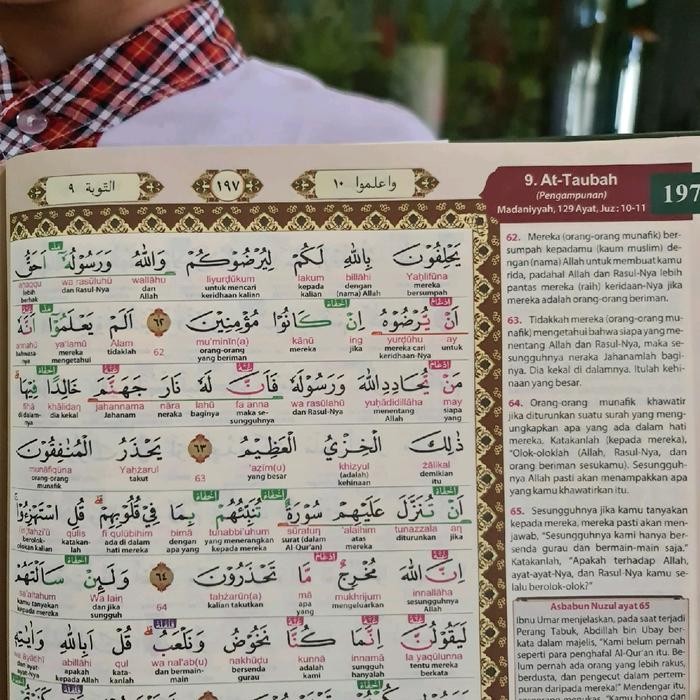 التوبة ٩
١٩٧
واعلموا ١٠
يَحْلِفُوْنَ بِاللّٰهِ لَكُمْ لِيُرْضُوْكُمْ وَاللّٰهُ وَرَسُوْلُهٗٓ اَحَقُّ
Yaḥlifūna billāhi lakum liyurḍūkum wallāhu wa rasūluhū aḥaqqu
mereka bersumpah dengan (nama) Allah kepada kalian untuk mencari keridhaan kalian dan Allah dan Rasul-Nya lebih berhak
اَنْ يُّرْضُوْهُ اِنْ كَانُوْا مُؤْمِنِيْنَ ٦٢ اَلَمْ يَعْلَمُوْٓا اَنَّهٗ
ay yurḍūhu ing kānū mu'minīn(a) 62 Alam ya'lamū annahū
untuk mereka cari keridhaan-Nya jika mereka orang-orang yang beriman tidaklah mereka mengetahui bahwasa-nya
مَنْ يُّحَادِدِ اللّٰهَ وَرَسُوْلَهٗ فَاَنَّ لَهٗ نَارَ جَهَنَّمَ خَالِدًا فِيْهَا
may yuḥādidillāha wa rasūlahū fa anna lahū nāra jahannama khālidan fīhā
siapa yang menentang Allah dan Rasul-Nya maka se-sungguhnya baginya neraka Jahanam kekal di dalam-nya
ذٰلِكَ الْخِزْيُ الْعَظِيْمُ ٦٣ يَحْذَرُ الْمُنٰفِقُوْنَ
żālikal khizyul 'aẓīm(u) 63 Yaḥżarul munāfiqūna
demikian itu (adalah) kehinaan yang besar takut orang-orang munafik
اَنْ تُنَزَّلَ عَلَيْهِمْ سُوْرَةٌ تُنَبِّئُهُمْ بِمَا فِيْ قُلُوْبِهِمْ قُلِ اسْتَهْزِءُوْا
an tunazzala 'alaihim sūratun tunabbi'uhum bimā fī qulūbihim qulis
diturunkan jika atas mereka surat (dalam Al-Qur'an) yang menerangkan kepada mereka dengan apa yang ada di dalam hati mereka katakanlah berolok-oloklah kalian
اِنَّ اللّٰهَ مُخْرِجٌ مَّا تَحْذَرُوْنَ ٦٤ وَلَىِٕنْ سَاَلْتَهُمْ
innallāha mukhrijum mā taḥżarūn(a) 64 Wa lain sa'altahum
sesungguhnya Allah mengeluarkan apa yang kalian takutkan dan jika sungguh kamu tanyakan kepada mereka
لَيَقُوْلُنَّ اِنَّمَا كُنَّا نَخُوْضُ وَنَلْعَبُ قُلْ اَبِاللّٰهِ وَاٰيٰتِهٖ
la yaqūlunna innamā kunnā nakhūḍu wa nal'ab(u) qul abillāhi
tentu mereka berkata sungguh hanyalah adalah kami bersenda gurau dan bermain-main kata-kanlah apakah kepada Allah
9. At-Taubah
(Pengampunan)
Madaniyyah, 129 Ayat, Juz : 10-11
197
62. Mereka (orang-orang munafik) ber-
sumpah kepadamu (kaum muslim) de-
ngan (nama) Allah untuk membuat kamu
rida, padahal Allah dan Rasul-Nya lebih
pantas mereka (raih) keridaan-Nya jika
mereka adalah orang-orang beriman.
63. Tidakkah mereka (orang-orang mu-
nafik) mengetahui bahwa siapa yang me-
nentang Allah dan Rasul-Nya, maka se-
sungguhnya neraka Jahanamlah bagi-
nya. Dia kekal di dalamnya. Itulah kehi-
naan yang besar.
64. Orang-orang munafik khawatir
jika diturunkan suatu surah yang meng-
ungkapkan apa yang ada dalam hati
mereka. Katakanlah (kepada mereka),
"Olok-oloklah (Allah, Rasul-Nya, dan
orang beriman sesukamu). Sesungguh-
nya Allah pasti akan menampakkan apa
yang kamu khawatirkan itu.
65. Sesungguhnya jika kamu tanyakan
kepada mereka, mereka pasti akan men-
jawab, "Sesungguhnya kami hanya ber-
senda gurau dan bermain-main saja."
Katakanlah, "Apakah terhadap Allah,
ayat-ayat-Nya, dan Rasul-Nya kamu se-
lalu berolok-olok?"
Asbabun Nuzul ayat 65
Ibnu Umar menjelaskan, pada saat terjadi
Perang Tabuk, Abdillah bin Ubay ber-
kata dalam majelis, "Kami belum pernah
seperti para penghafal Al-Qur'an itu. Be-
lum pernah ada orang yang lebih rakus,
berdusta, dan pengecut dalam pertem-
puran daripada mereka." Mendengar itu,